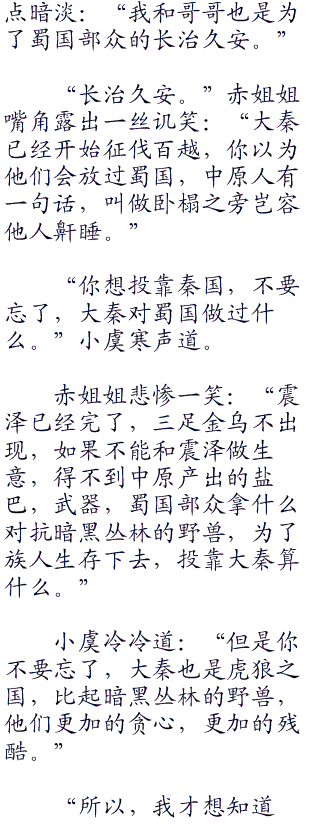 点暗淡：“我和哥哥也是为
了蜀国部众的长治久安。”
“长治久安。”赤姐姐
嘴角露出一丝讥笑：“大秦
已经开始征伐百越，你以为
他们会放过蜀国，中原人有
一句话，叫做卧榻之旁岂容
他人鼾睡。”
“你想投靠秦国，不要
忘了，大秦对蜀国做过什
么。”小虞寒声道。
赤姐姐悲惨一笑：“震
泽已经完了，三足金乌不出
现，如果不能和震泽做生
意，得不到中原产出的盐
巴，武器，蜀国部众拿什么
对抗暗黑丛林的野兽，为了
族人生存下去，投靠大秦算
什么。”
小虞冷冷道：“但是你
不要忘了，大秦也是虎狼之
国，比起暗黑丛林的野兽，
他们更加的贪心，更加的残
酷。”
“所以，我才想知道